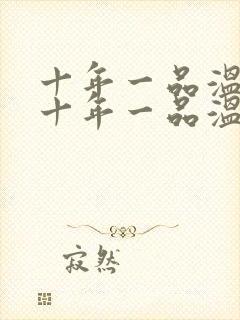 十年一品温
十年一品温
寂然